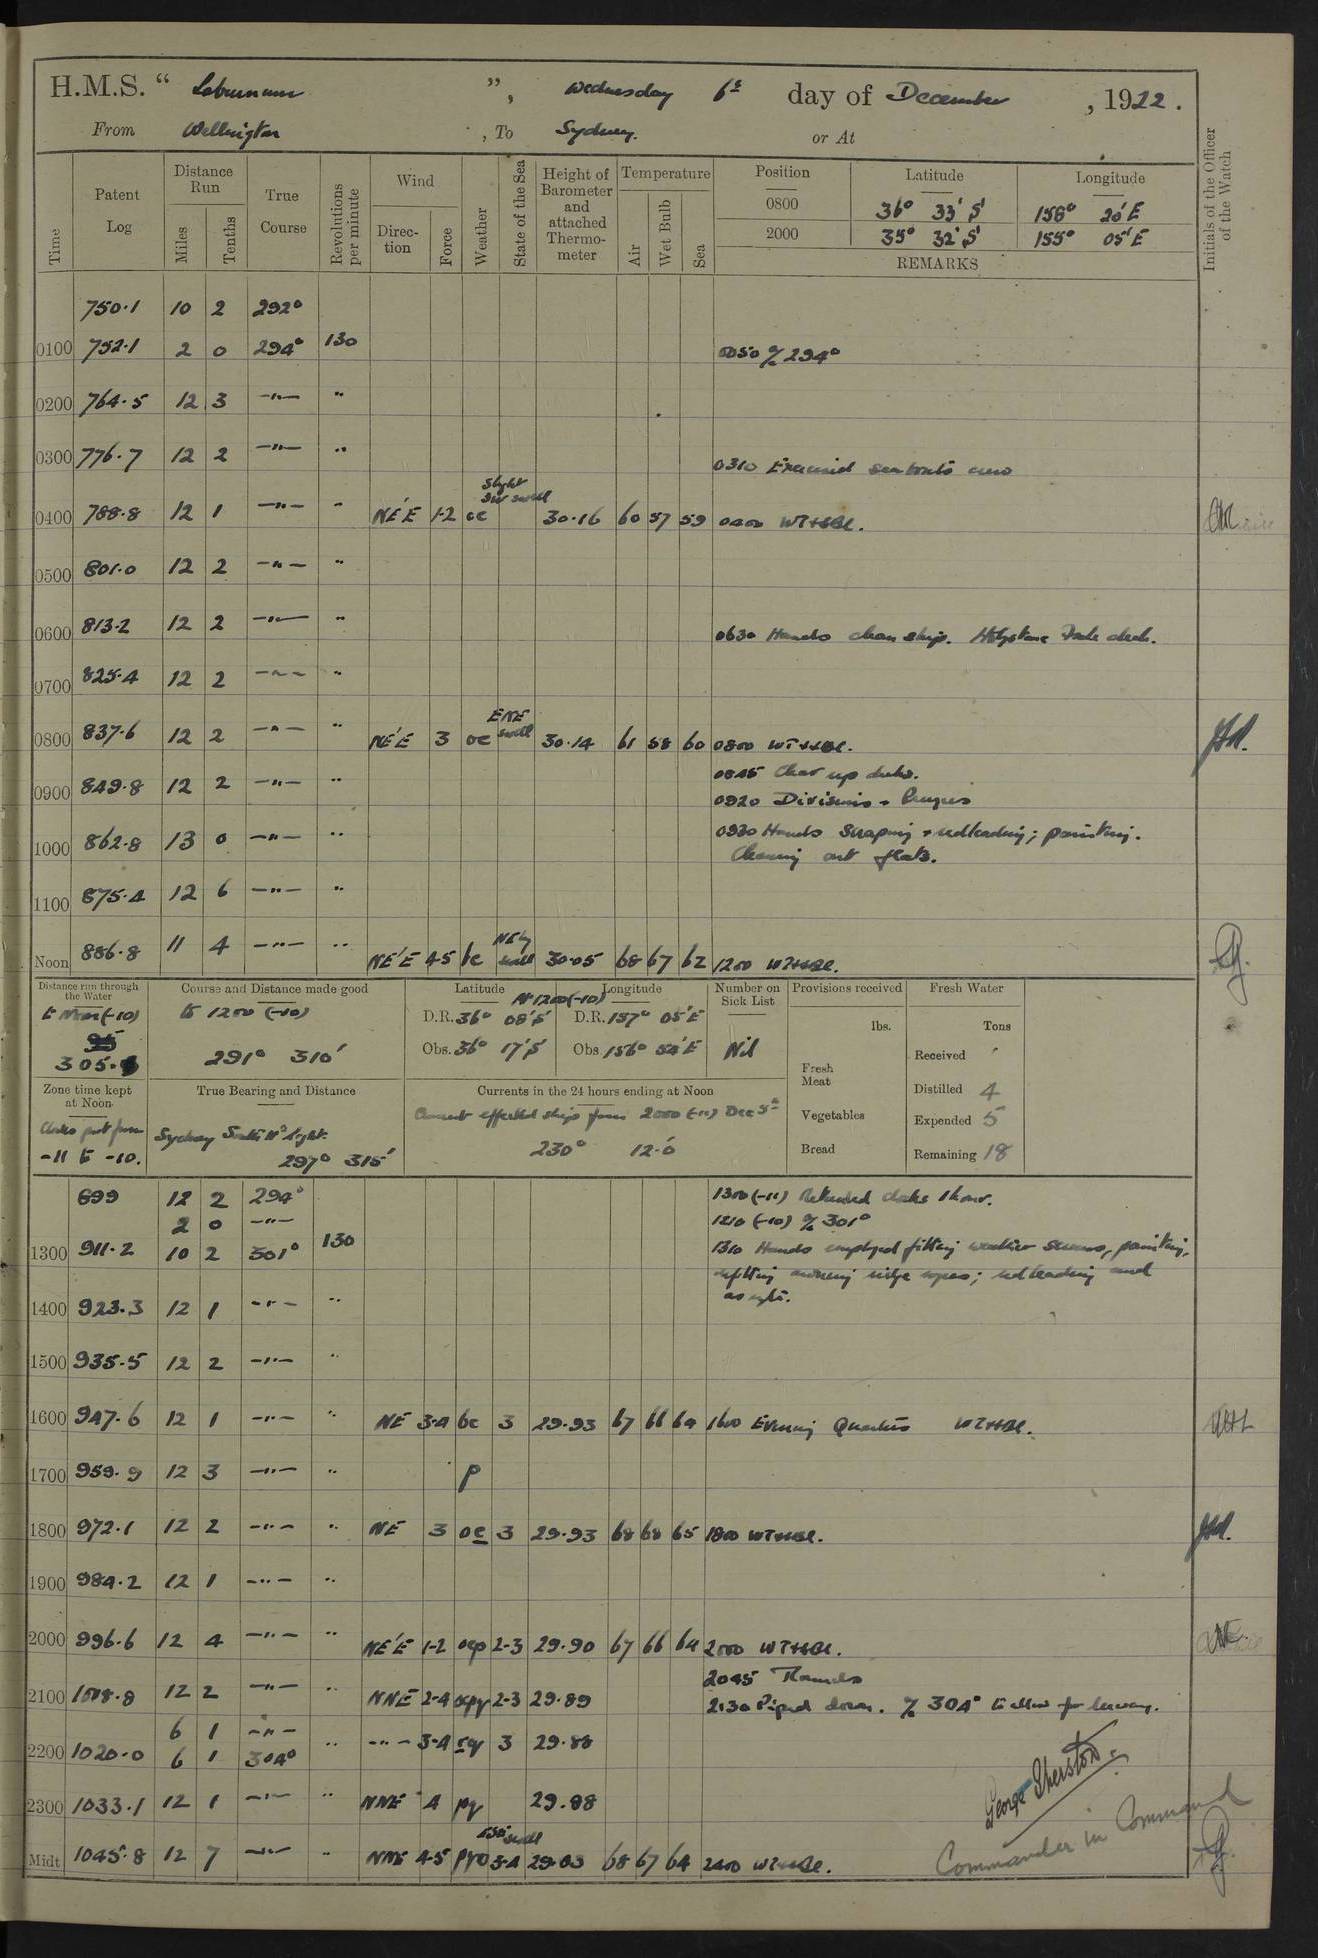 H.M.S. “ Laburnum ”, Wednesday 6th day of December, 1922.
From Wellington, To Sydney. or At
Time Patent Log Distance Run Miles Tenths True Course Revolutions per minute Wind Direction Force Weather State of the Sea Height of Barometer and attached Thermometer Temperature Air Wet Bulb Sea Position Latitude Longitude Initials of the Officer of the Watch
0800 36° 33' S 156° 20' E
2000 35° 32' S 155° 05' E
REMARKS
750.1 10 2 292°
0100 752.1 2 0 294° 130 0050 a/c 294°
0200 764.5 12 3 —"— "
0300 776.7 12 2 —"— "
0310 Exercised seaboat's crew
Slight SW swell
0400 788.8 12 1 —"— " NE'E 1-2 oc 30.16 60 57 59 0400 WT+HBl.
0500 801.0 12 2 —"— "
0600 813.2 12 2 —"— "
0630 Hands clean ship. Holystone deck.
0700 825.4 12 2 —"— "
ENE swell
0800 837.6 12 2 —"— " NE'E 3 oc 30.14 61 58 60 0800 WT+HBl.
0845 Clear up decks.
0900 849.8 12 2 —"— "
0920 Divisions + Prayers
0930 Hands scraping + redleading; painting.
1000 862.8 13 0 —"— "
Cleaning out flats.
1100 875.4 12 6 —"— "
NE'ly swell
Noon 886.8 11 4 —"— " NE'E 4-5 bc 30.05 68 67 62 1200 WT+HBl.
Distance run through the Water Course and Distance made good Latitude Longitude Number on Sick List Provisions received Fresh Water
to Noon (-10) to 1200 (-10) At 1200 (-10)
305. 291° 310'
D.R. 36° 08' S D.R. 157° 05' E
Obs. 36° 17' S Obs. 156° 54' E Nil
lbs. Tons
Fresh Meat
Vegetables
Bread
Received
Distilled 4
Expended 5
Remaining 18
Zone time kept at Noon True Bearing and Distance Currents in the 24 hours ending at Noon
Clocks put from -11 to -10.
Sydney South Hd Light. 297° 315'
Current effected ships from 2000 (-11) Dec 5th
230° 12.0
699 12 2 294° 1300 (-11) Retarded clocks 1 hour.
2 0 —"— 1210 (-10) a/c 301°
1300 911.2 10 2 301° 130 1310 Hands employed fitting weather screens, painting,
refitting awning ridge ropes; redleading and
1400 923.3 12 1 —"— " as reqte.
1500 935.5 12 2 —"— "
1600 947.6 12 1 —"— " NE 3-4 bc 3 29.93 67 66 64 1600 Evening Quarters WT+HBl.
1700 959.9 12 3 —"— " p
1800 972.1 12 2 —"— " NE 3 oc 3 29.93 68 68 65 1800 WT+HBl.
1900 984.2 12 1 —"— "
2000 996.6 12 4 —"— " NE'E 1-2 ocp 2-3 29.90 67 66 64 2000 WT+HBl.
2045 Rounds
2100 1008.8 12 2 —"— " NNE 2-4 ocpq 2-3 29.89 2130 Piped down. a/c 304° to allow for leeway.
6 1 —"—
2200 1020.0 6 1 304° " —"— 3-4 cq 3 29.88
2300 1033.1 12 1 —"— " NNE 4 pq 29.88
swell
Midt 1045.8 12 7 —"— " NNE 4-5 pqo 3-4 29.83 68 67 64 2400 WT+HBl.
George Sherston.
Commander in Command